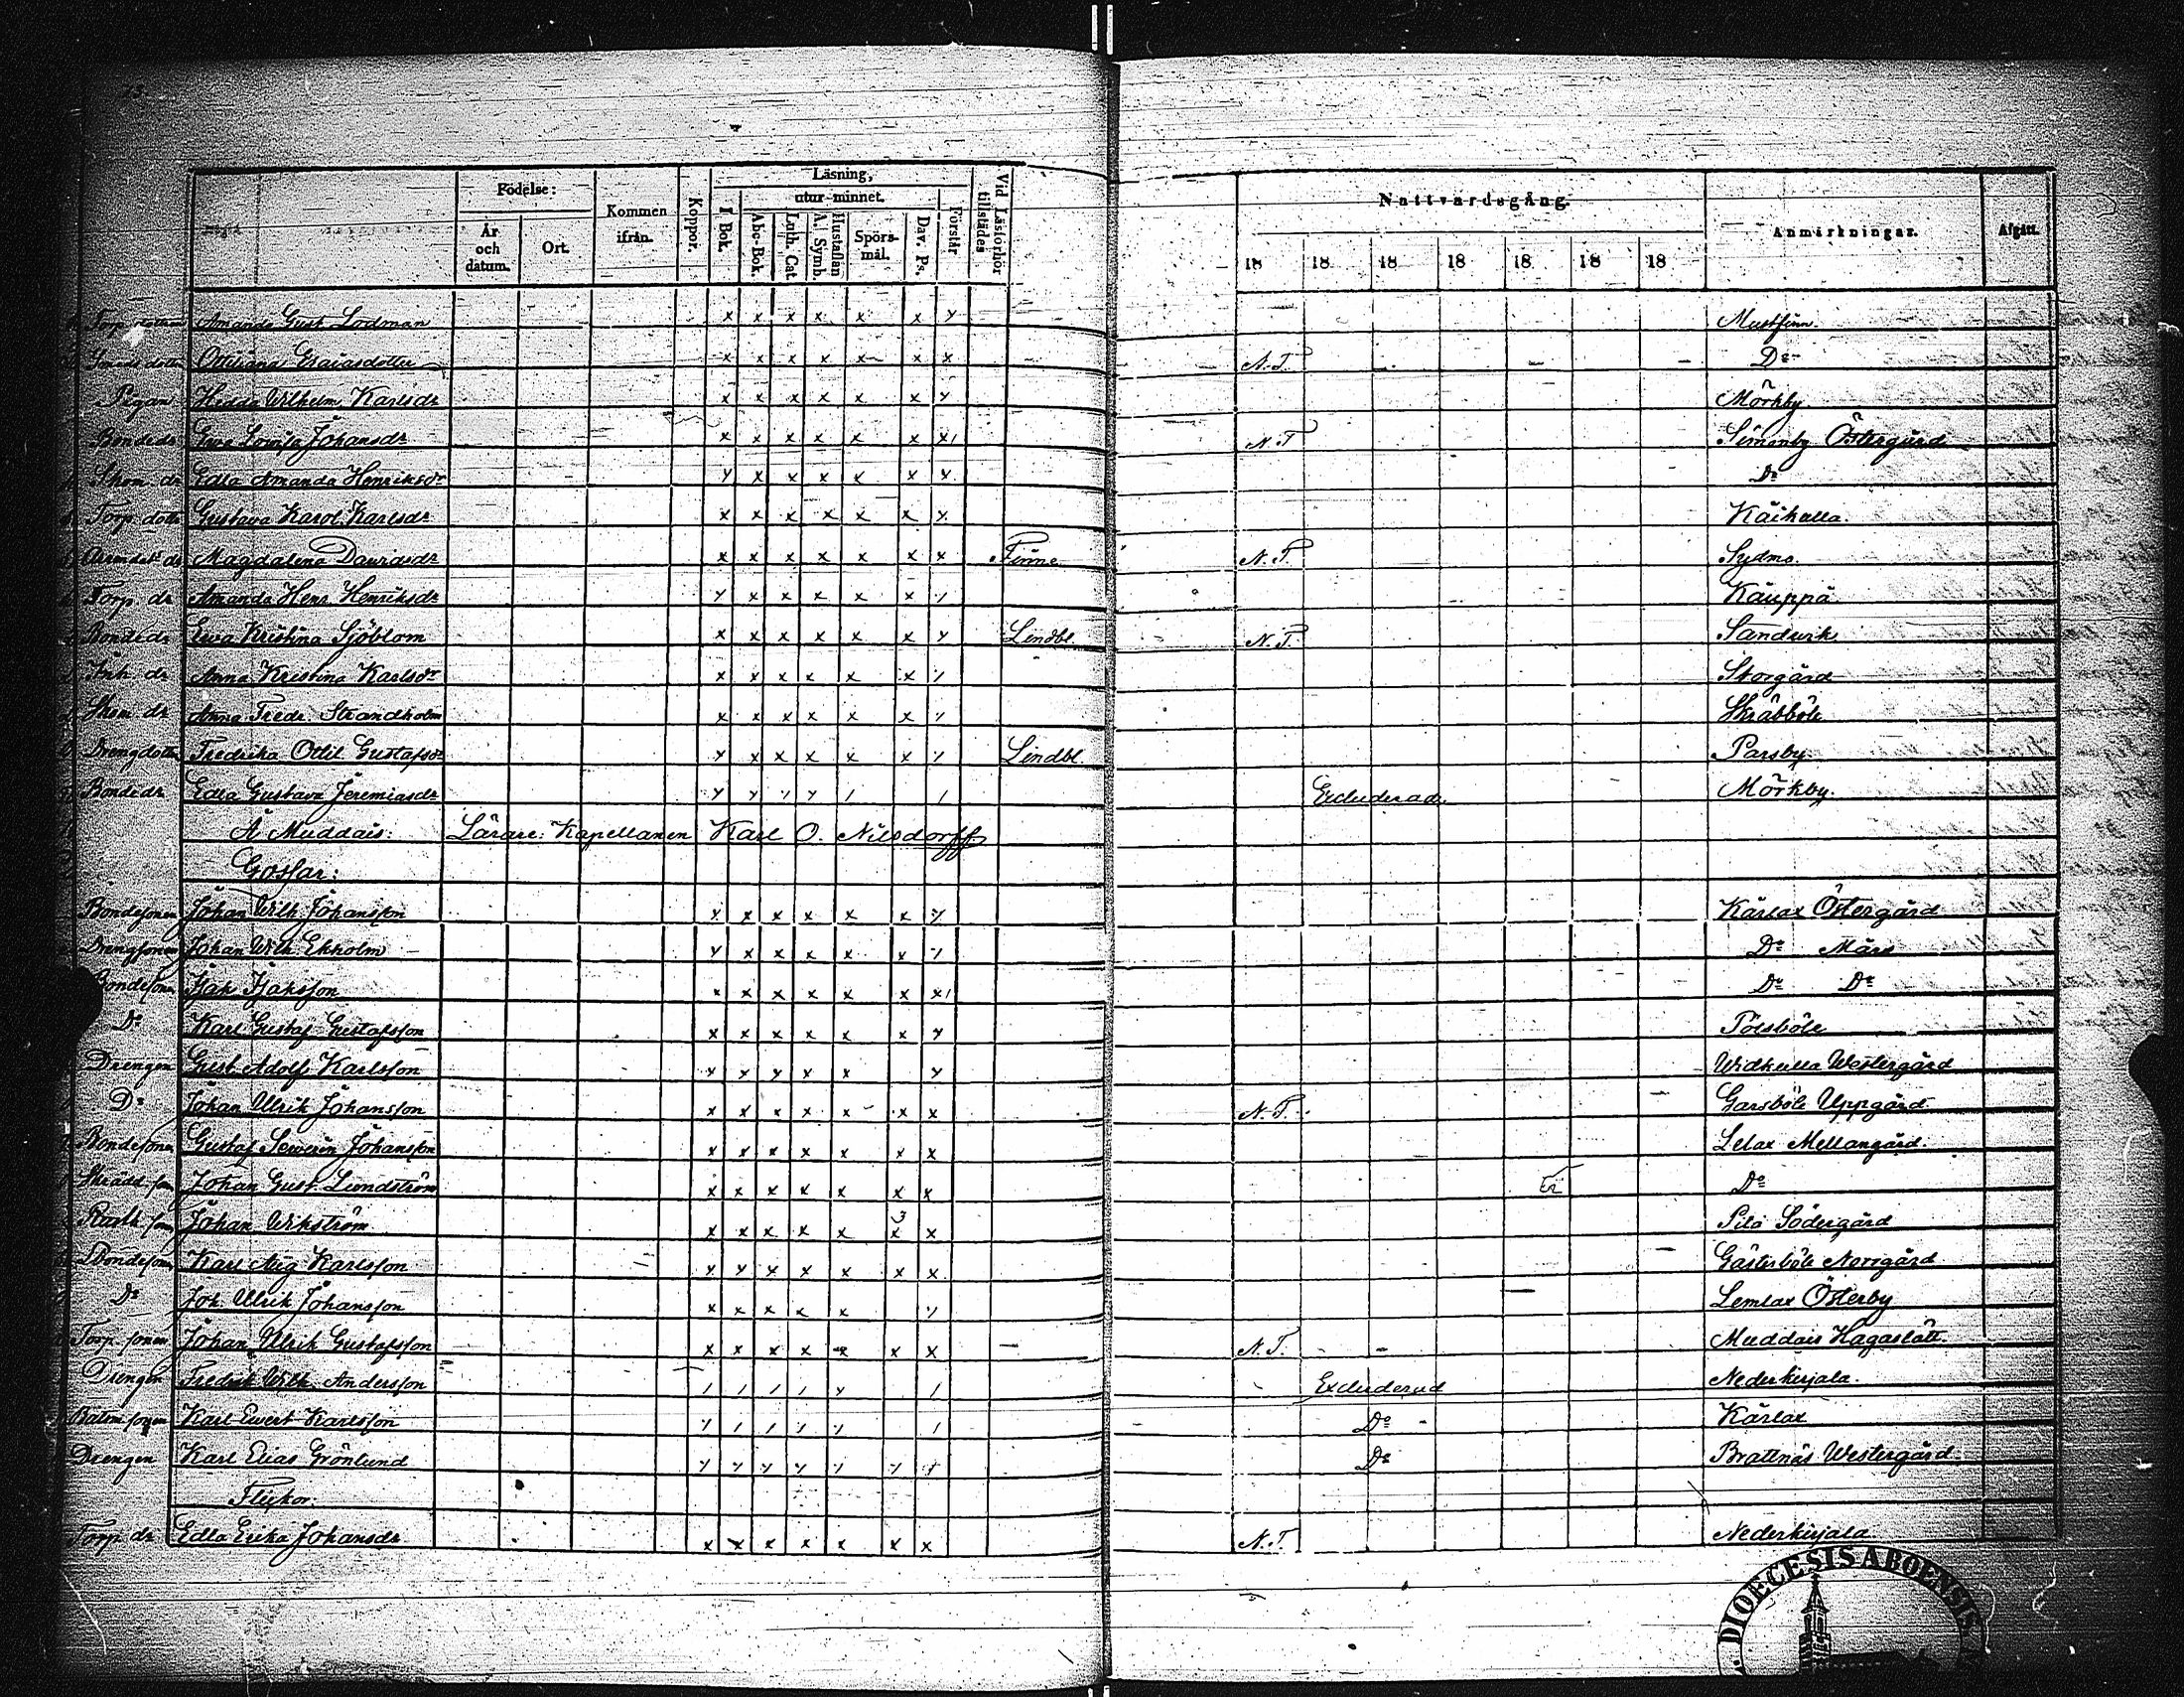 Födelse:
År och datum.
Ort.
Kommen ifrån.
Koppor.
Läsning,
utur minnet.
I Bok.
Abc-Bok.
Luth. Cat.
A. Symb.
Hustaflan
Spörsmål.
Dav. Ps.
Förstår
Vid Läsförhör tillstädes
Nattvardsgång.
18 18 18 18 18 18 18
Anmärkningar.
Afgått.
Amanda Gust. Lodman x x x x x x x Mustfinn
Ottiliana Esaiasdotter x x x x x x x N. T. Do
Pigan Hedda Wilhelm. Karlsdr x x x x x x x Mörkby
Bondedr Ewa Lovisa Johansdr x x x x x x x N. T. Simonby Östergård
Skom. dr Edla Amanda Henriksdr x x x x x x x Do
Torp. dottr Gustava Karol. Karlsdr x x x x x x x
Magdalena Davidsdr x x x x x x x Finne N. T. Sydmo.
Torp. dr Amanda Henr. Henriksdr x x x x x x x Käuppä
Bondedr Ewa Kristina Sjöblom x x x x x x x Lindbl. N. T. Sandvik
Inh. dr Anna Kristina Karlsdr x x x x x x x Storgård
Skom. dr Anna Fredr. Strandholm x x x x x x x Skräbböle
Drengdottr Fredrika Ottil. Gustafsdr x x x x x x x Lindbl. Parsby
Bondedr Edla Gustava Jeremiasdr Excluderad. Mörkby.
Å Muddais: Lärare: Kapellanen Karl O. Nilsdorff
Gossar:
Bondesonen Johan Wilh. Johansson x x x x x x x Kärlax Östergård
Drengsonen Johan Wilh. Ekholm x x x x x x x Do Mårs
Bondeson Isak Isaksson x x x x x x x Do Do
Do Karl Gustaf Gustafsson x x x x x x x Tölsböle
Drengen Gust. Adolf Karlsson x x x x x x Widkulla Westergård
Do Johan Ulrik Johansson x x x x x x x N. T. Garsböle Uppgård
Bondesonen Gustaf Severin Johansson x x x x x x x Lelax Mellangård.
Skrädd. son Johan Gust. Lundström x x x x x x x Do
Johan Wikström x x x x x 3 x x Pila Södergård
Bondeson Karl Aug. Karlsson x x x x x x x Gästerböle Norrgård
Do Joh. Ulrik Johansson x x x x x x Lemlax Österby
Torp. sonen Johan Ulrik Gustafsson x x x x x x x N. T. Muddais Hagaslätt.
Drengen Fredrik Wilh. Andersson Excluderad Nederkirjala.
Båtsm. sonen Karl Evert Karlsson Do Kärlax
Drengen Karl Elias Grönlund Do Brattnäs Westergård
Flickor.
Torp. dr Edla Erika Johansdr x x x x x x x N. T. Nederkirjala
DIOECESIS ABOENSIS